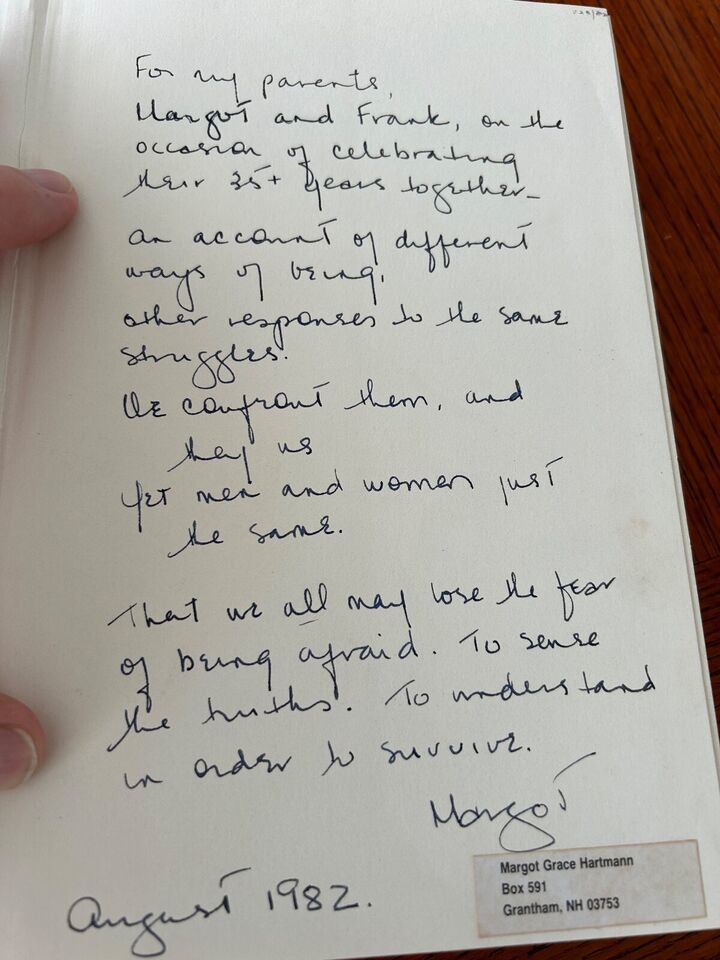 For my parents,
Margot and Frank, on the
occasion of celebrating
their 35+ years together–
an account of different
ways of being,
other responses to the same
struggles.
We confront them, and
they us
Yet men and women just
the same.
That we all may lose the fear
of being afraid. To sense
the truths. To understand
in order to survive.
Margot
Margot Grace Hartmann
Box 591
Grantham, NH 03753
August 1982.